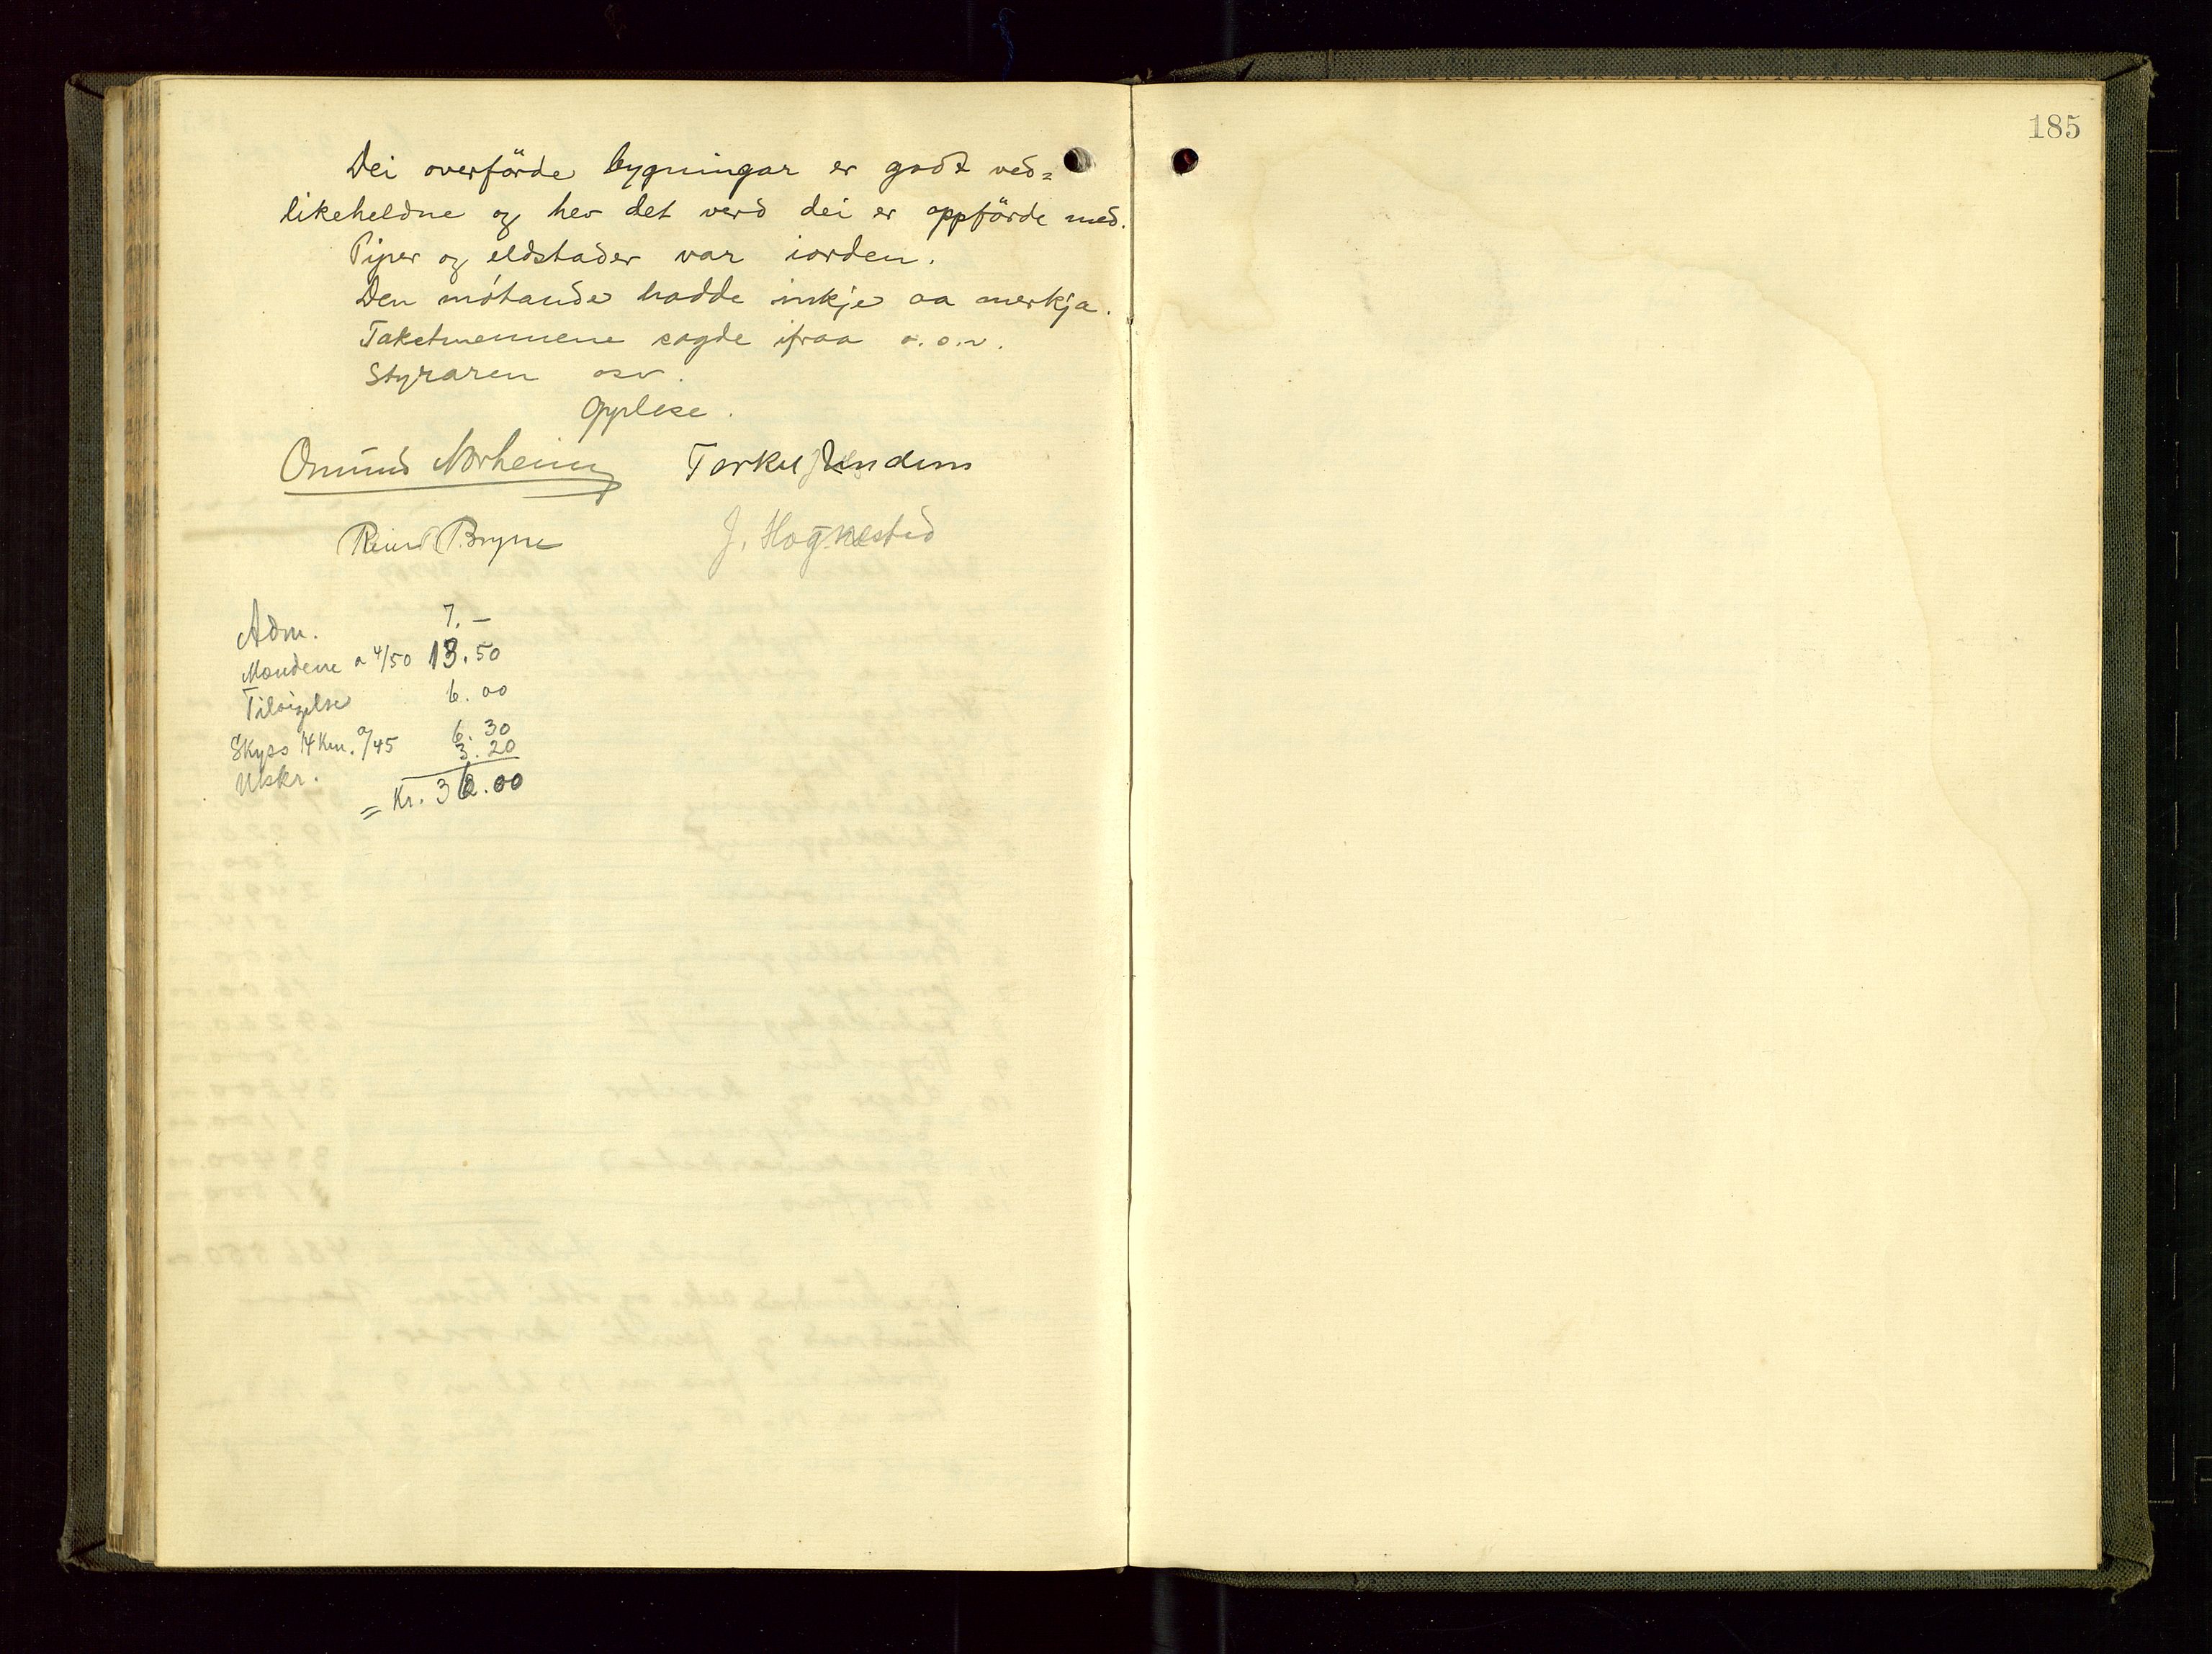 185
Dei overförde bygningar er godt ved=
likeheldne og hev det verd dei er oppförde med.
Piper og eldstader var iorden.
Den mótande hadde inkje aa merkja.
Takstmennene sagde ifraa o.s.v.
Styraren osv.
Opplese.
Osmund Norheim Torkel Undem
Reiné Bryne J. Hognestad
Adm. 7.–
Mændene a 4/50 13.50
Tilvigelse 6.00
Skyss 14 Km. a/45 6.30
Utskr. 3.20
= Kr. 36.00